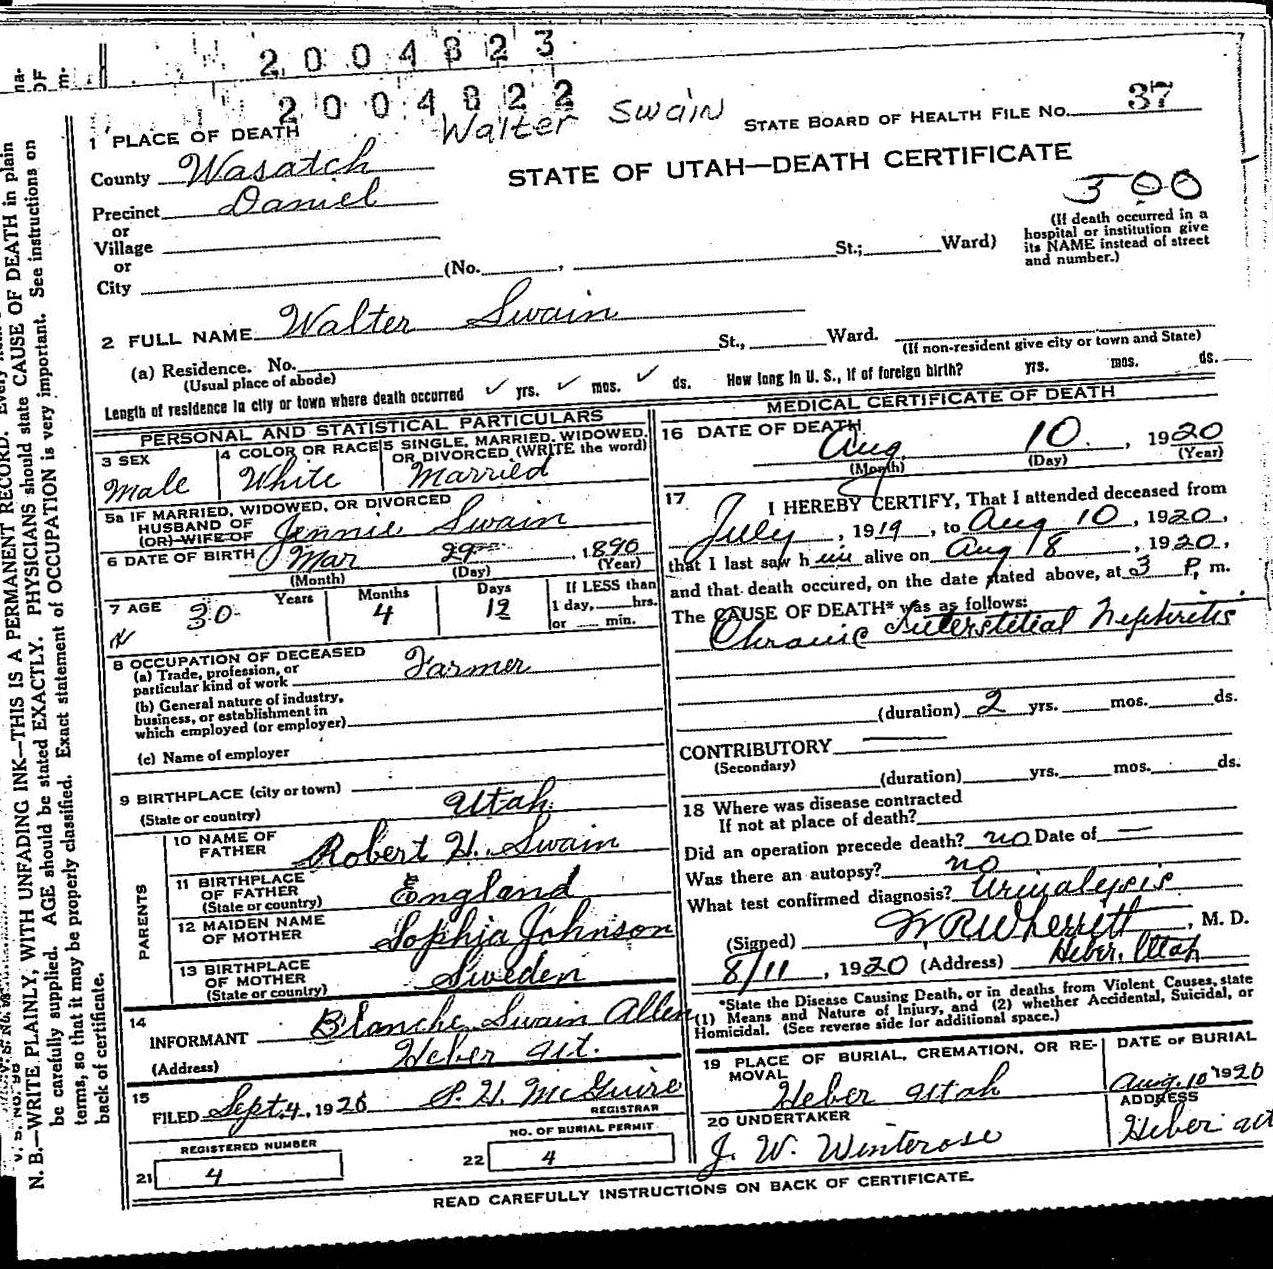 2004823
2004822
Walter Swain
STATE BOARD OF HEALTH FILE NO. 37
1 PLACE OF DEATH
County Wasatch
STATE OF UTAH—DEATH CERTIFICATE
Precinct Daniel
300
or
Village
or
City
(No. , St.; Ward)
(If death occurred in a
hospital or institution give
its NAME instead of street
and number.)
2 FULL NAME Walter Swain
(a) Residence. No. St., Ward.
(Usual place of abode)
(If non-resident give city or town and State)
Length of residence in city or town where death occurred ✓ yrs. ✓ mos. ✓ ds. How long in U. S., if of foreign birth? yrs. mos. ds.
PERSONAL AND STATISTICAL PARTICULARS
3 SEX
Male
4 COLOR OR RACE
White
5 SINGLE, MARRIED, WIDOWED,
OR DIVORCED (WRITE the word)
Married
5a IF MARRIED, WIDOWED, OR DIVORCED
HUSBAND OF
(OR) WIFE OF
Jennie Swain
6 DATE OF BIRTH Mar 29 , 1890
(Month) (Day) (Year)
7 AGE
30 Years
Months 4
Days 12
If LESS than
1 day, hrs.
or min.
8 OCCUPATION OF DECEASED
(a) Trade, profession, or
particular kind of work Farmer
(b) General nature of industry,
business, or establishment in
which employed (or employer)
(c) Name of employer
9 BIRTHPLACE (city or town)
(State or country) Utah
PARENTS
10 NAME OF
FATHER Robert H. Swain
11 BIRTHPLACE
OF FATHER
(State or country) England
12 MAIDEN NAME
OF MOTHER Sophia Johnson
13 BIRTHPLACE
OF MOTHER
(State or country) Sweden
14
INFORMANT Blanche Swain Allen
(Address) Heber Ut.
15
FILED Sept. 4, 1920 P. H. McGuire
REGISTRAR
REGISTERED NUMBER
21 4
NO. OF BURIAL PERMIT
22 4
MEDICAL CERTIFICATE OF DEATH
16 DATE OF DEATH
Aug 10 , 1920
(Month) (Day) (Year)
17
I HEREBY CERTIFY, That I attended deceased from
July , 1919 , to Aug 10 , 1920,
that I last saw him alive on Aug 8 , 1920,
and that death occured, on the date stated above, at 3 P. m.
The CAUSE OF DEATH* was as follows:
Chronic Interstetial Nephritis
(duration) 2 yrs. mos. ds.
CONTRIBUTORY
(Secondary)
(duration) yrs. mos. ds.
18 Where was disease contracted
If not at place of death?
Did an operation precede death? no Date of —
Was there an autopsy? no
What test confirmed diagnosis? Urinalysis
(Signed) W R Wherritt , M. D.
8/11 , 1920 (Address) Heber, Utah
*State the Disease Causing Death, or in deaths from Violent Causes, state
(1) Means and Nature of Injury, and (2) whether Accidental, Suicidal, or
Homicidal. (See reverse side for additional space.)
19 PLACE OF BURIAL, CREMATION, OR RE-
MOVAL
Heber Utah
DATE OF BURIAL
Aug. 10 1920
20 UNDERTAKER
J. W. Winterose
ADDRESS
Heber Ut
READ CAREFULLY INSTRUCTIONS ON BACK OF CERTIFICATE.
N. B.—WRITE PLAINLY, WITH UNFADING INK—THIS IS A PERMANENT RECORD.
be carefully supplied. AGE should be stated EXACTLY. PHYSICIANS should state CAUSE OF DEATH in plain
terms, so that it may be properly classified. Exact statement of OCCUPATION is very important. See instructions on
back of certificate.